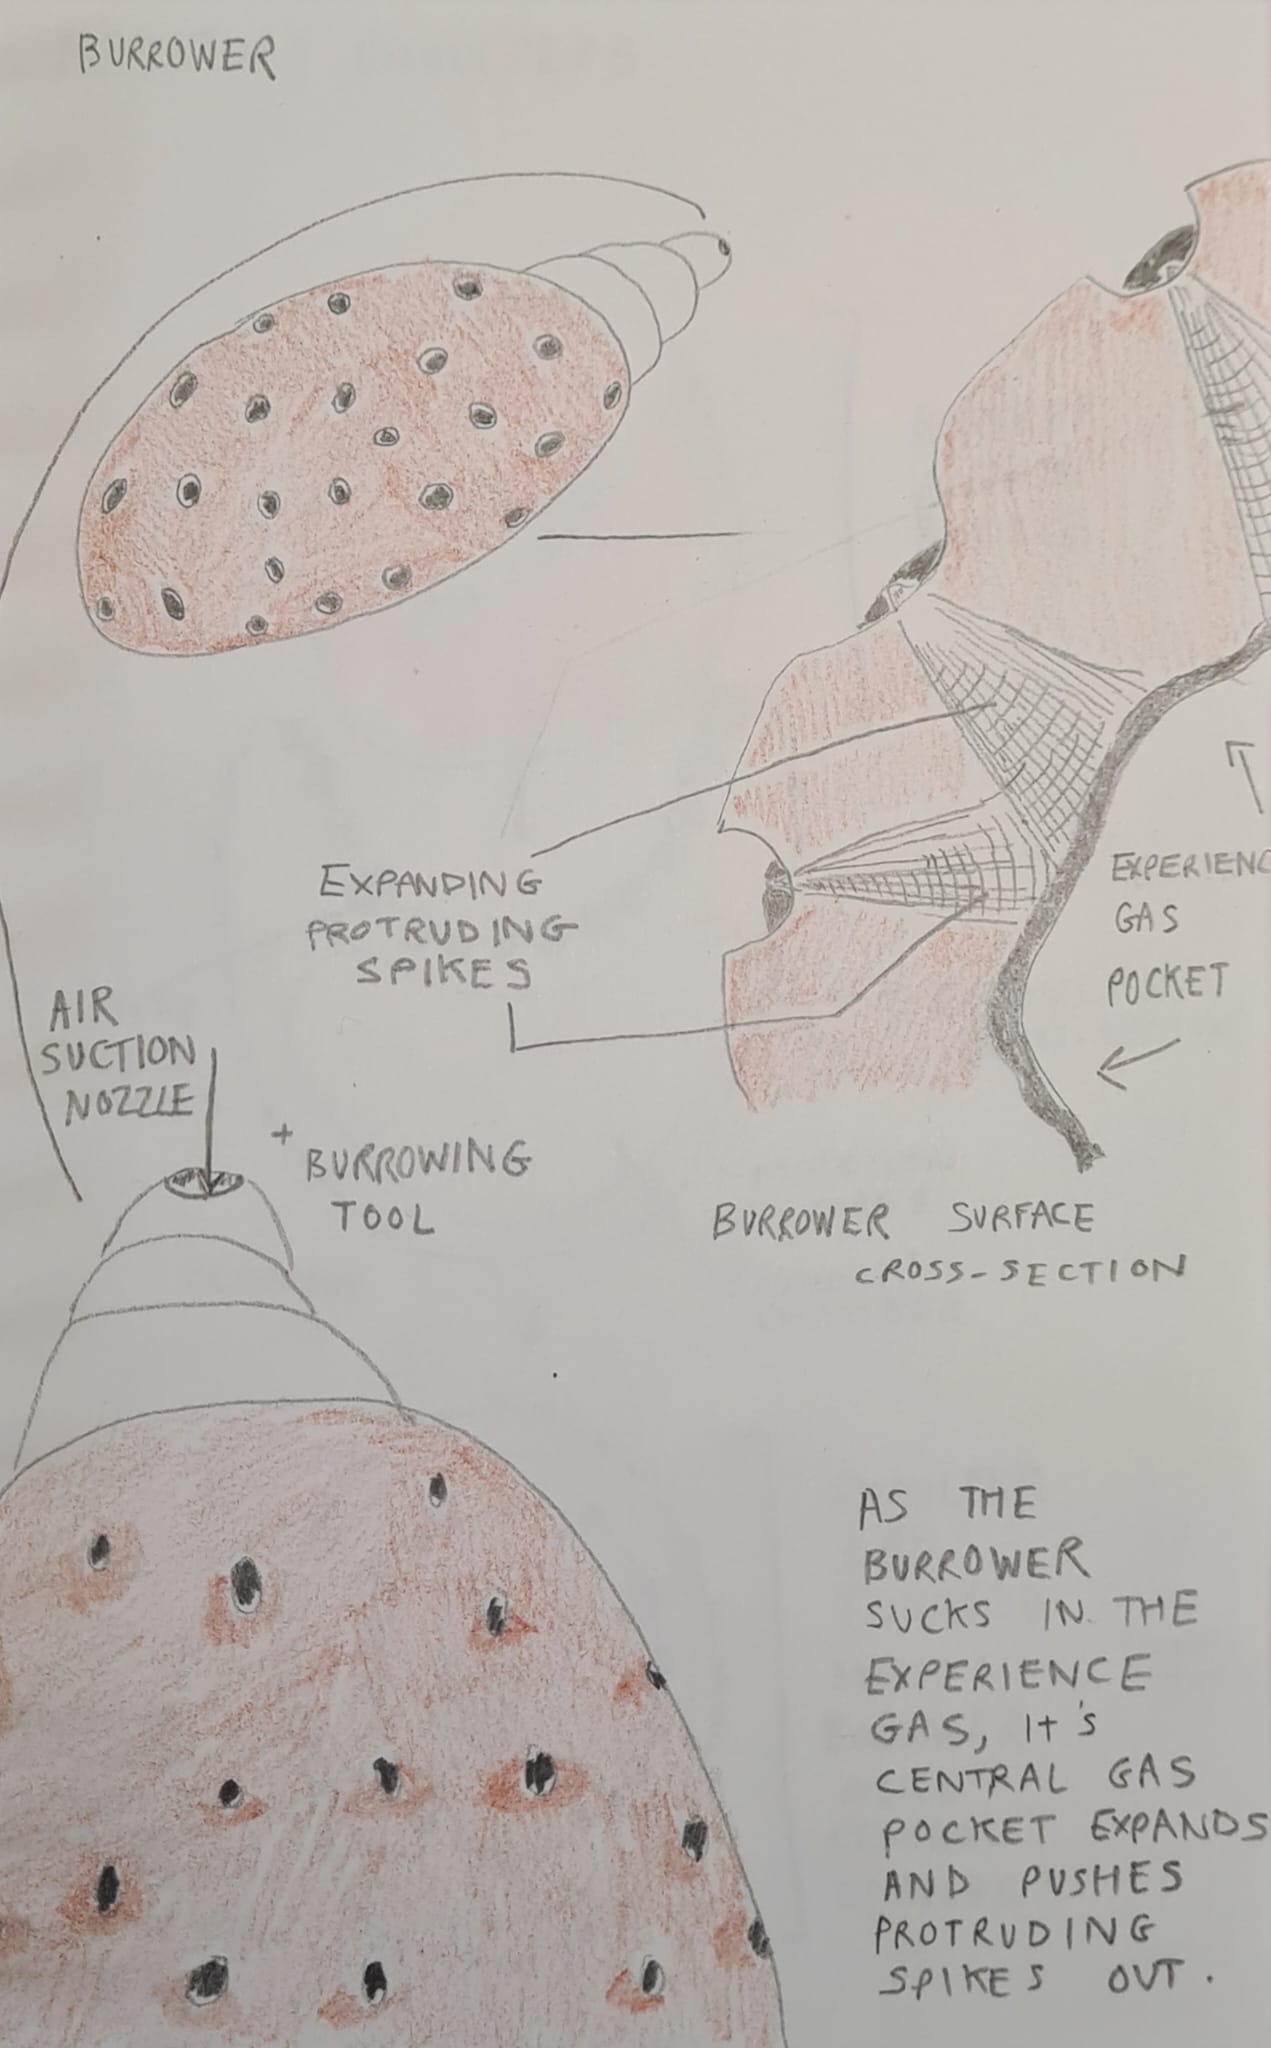 BURROWER
EXPANDING
PROTRUDING
SPIKES
EXPERIENC
GAS
POCKET
AIR
SUCTION
NOZZLE
+
BURROWING
TOOL
BURROWER SURFACE
CROSS-SECTION
AS THE
BURROWER
SUCKS IN THE
EXPERIENCE
GAS, It's
CENTRAL GAS
POCKET EXPANDS
AND PUSHES
PROTRUDING
SPIKES OUT.